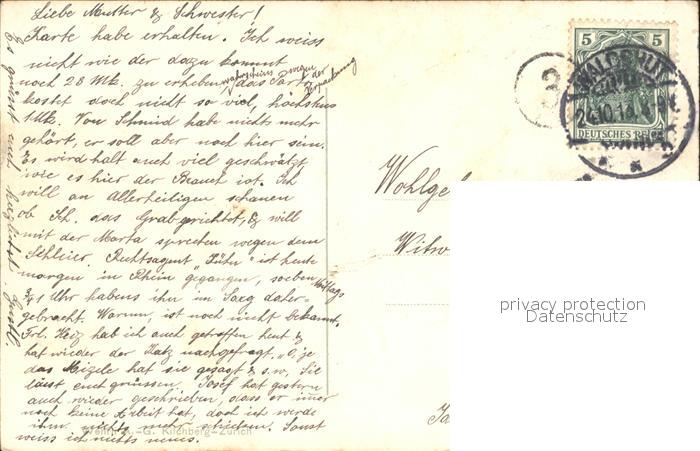 Liebe Mutter & Schwester!
Karte habe erhalten. Ich weiss
nicht wie der dazu kommt
noch 28 Mk. zu erheben, das Porto
wahrscheins wegen der Verpackung
kostet doch nicht so viel, höchstens
1 Mk. Von Schmid habe nichts mehr
gehört, er soll aber noch hier sein.
Es wird halt auch viel geschwätzt
wie es hier der Brauch ist. Ich
will an Allerheiligen schauen
ob Sch. das Grab gerichtet, & will
mit der Marta sprechen wegen dem
Schleier. Rechtsagent "Lühn" ist heute
morgen in Rhein gegangen, soeben Mittags
3/4 1 Uhr habens ihn im Sarg daher-
gebracht. Warum, ist noch nicht bekannt.
Frl. Heiz hab ich auch getroffen heut &
hat wieder der Katz nachgefragt, "O, je
das Mizele" hat sie gesagt & s.w. Sie
lässt euch grüssen. Josef hat gestern
auch wieder geschrieben, dass er imer
noch keine Arbeit hat, doch ich werde
ihm nichts mehr schicken. Sonst
weiss ich nichts neues.
Es grüsst euch herzlichst
Wohlge
Witw
5 5
DEUTSCHES REICH
WALDSHUT
24.10.12
Wehrli A.-G. Kilchberg-Zürich
privacy protection
Datenschutz